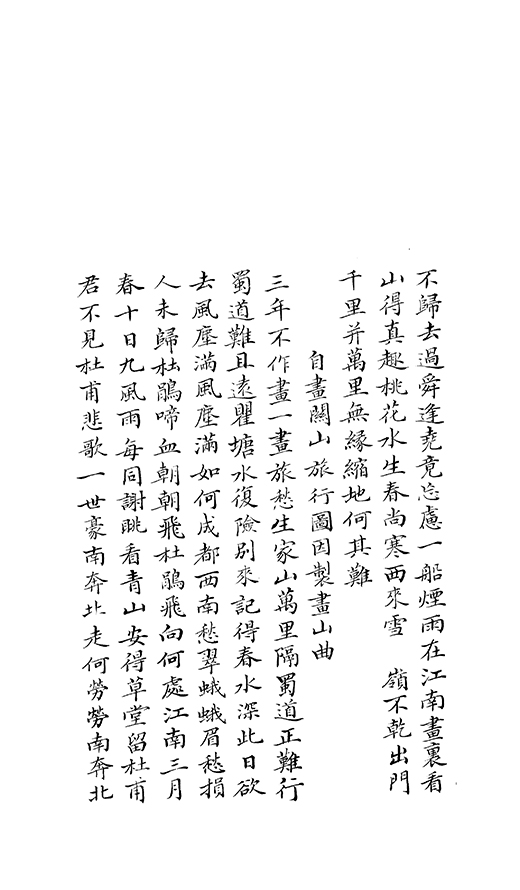 不歸去過舜逢堯竟忘慮一船煙雨在江南畫裏看
山得真趣桃花水生春尚寒西來雪 嶺不乾出門
千里并萬里無緣縮地何其難
自畫關山旅行圖因製畫山曲
三年不作畫一畫旅愁生家山萬里隔蜀道正難行
蜀道難且遠瞿塘水復險別來記得春水深此日欲
去風塵滿風塵滿如何成都西南愁翠蛾蛾眉愁損
人未歸杜鵑啼血朝朝飛杜鵑飛向何處江南三月
春十日九風雨每同謝眺看青山安得草堂留杜甫
君不見杜甫悲歌一世豪南奔北走何勞勞南奔北